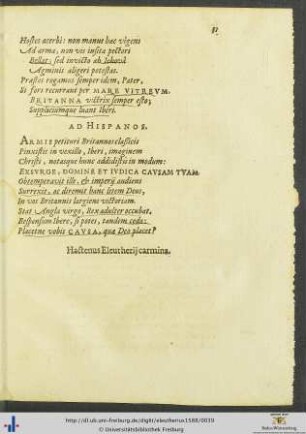 Hostes acerbi: non manus hac vigens
Ad arma, non vis insita pectori
Bellat: sed invicto ab Iehovâ
Agminis aligeri potestas.
Præstes rogamus semper idem, Pater,
Si fors recurrant per MARE VITREVM.
BRITANNA victrix semper esto;
Suppliciumque luant Iberi.
AD HISPANOS.
ARMIS petituri Britannos classicis
Pinxistis in vexillo, Iberi, imaginem
Christi, notasque hunc addidistis in modum:
EXSVRGE, DOMINE ET IVDICA CAVSAM TVAM.
Obtemperavit ille, & imperij audiens
Surrexit, ac diremit hanc litem Deus,
In vos Britannis largiens victoriam.
Stat Angla virgo, Rex adulter occubat,
Responsum Ibere, si potes, tandem cedo:
Placetne vobis CAVSA, quæ Deo placet?
Hactenus Eleutherij carmina.
http://dl.ub.uni-freiburg.de/diglit/eleutherius1588/0039
© Universitätsbibliothek Freiburg
Baden-Württemberg